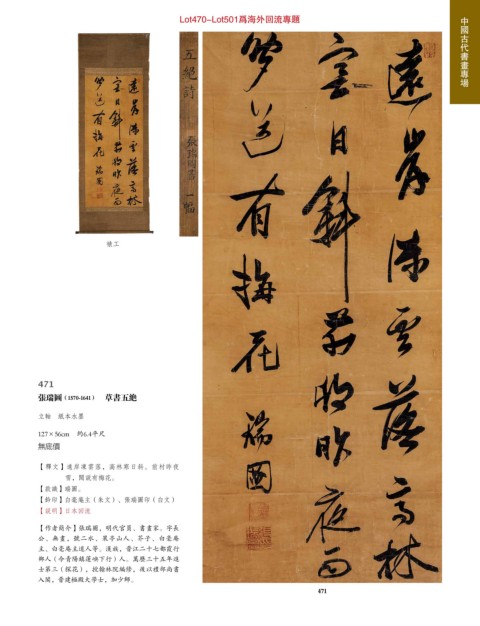 Lot470~Lot501爲海外回流專題
中國古代書畫專場
遠岸
五絕詩
張瑞圖
一幅
遠岸凍雲落高林
寒日斜前村昨夜雨
聞道有梅花
瑞圖
遠岸凍雲落高林
寒日斜前村昨夜雨
聞道有梅花
瑞圖
裱工
471
張瑞圖(1570-1641) 草書五絶
立軸 紙本水墨
127×56cm 約6.4平尺
無底價
【釋文】遠岸凍雲落,高林寒日斜。前村昨夜
雪,聞説有梅花。
【款識】瑞圖。
【鈐印】白毫庵主(朱文),張瑞圖印(白文)
【説明】日本回流
【作者簡介】張瑞圖,明代官員、書畫家。字長
公、無畫,號二水、果亭山人、芥子、白毫庵
主、白毫庵主道人等。漢族,晉江二十七都霞行
鄉人(今青陽鎮蓮嶼下行)人。萬曆三十五年進
士第三(探花),授翰林院編修,後以禮部尚書
入閣,晉建極殿大學士,加少師。
471